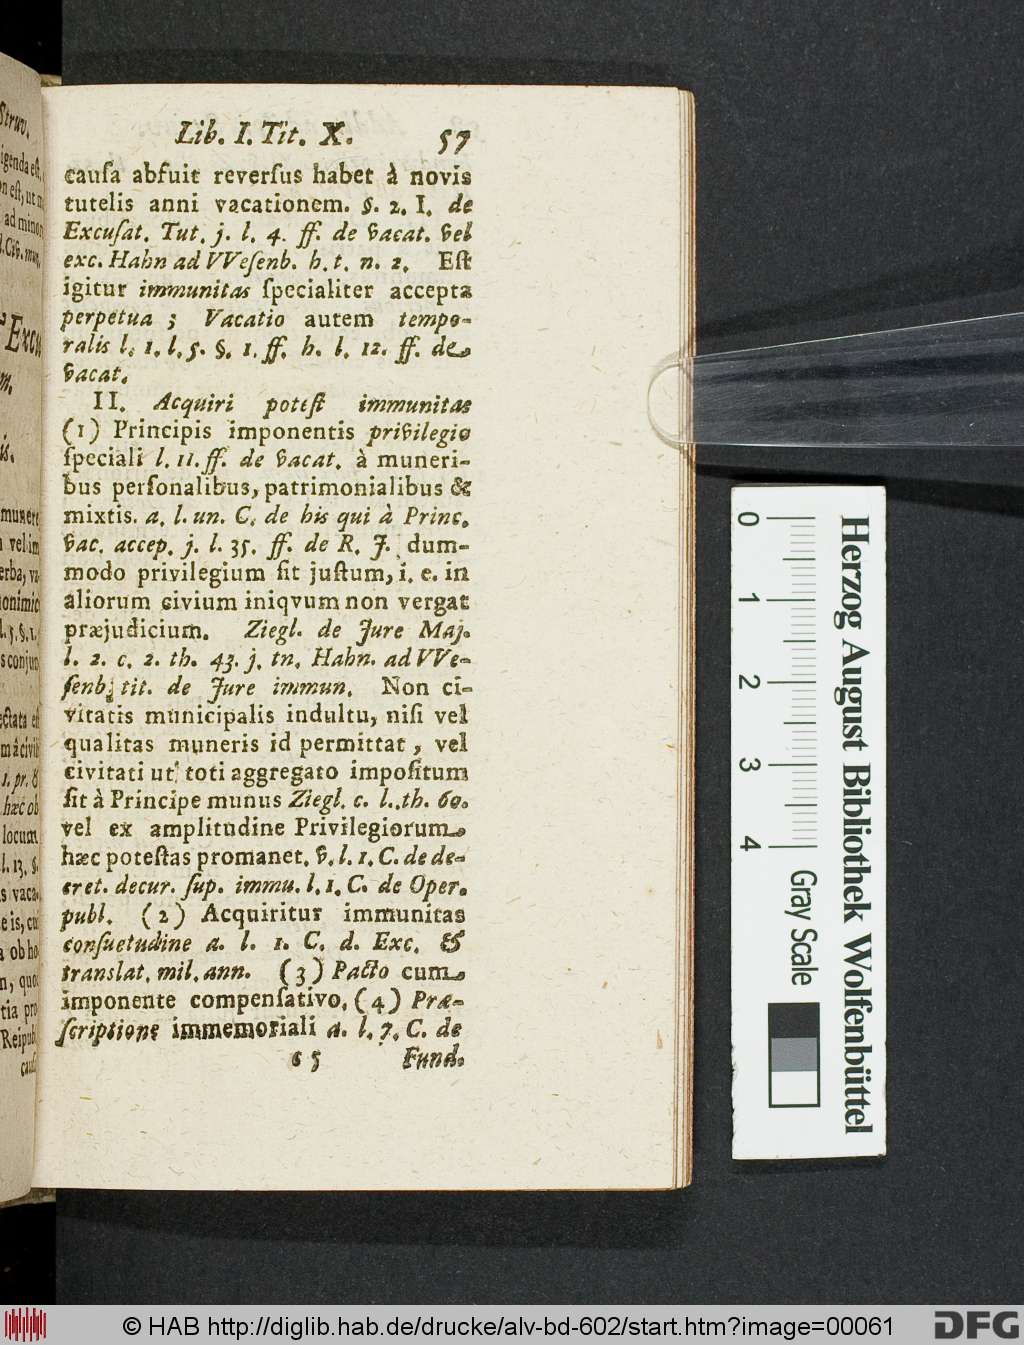 Lib. I. Tit. X. 57
cauſa abfuit reverſus habet à novis
tutelis anni vacationem. §. 2. I. de
Excuſat. Tut. j. l. 4. ff. de vacat. vel
exc. Hahn ad VVeſenb. h. t. n. 2. Eſt
igitur immunitas ſpecialiter accepta
perpetua ; Vacatio autem tempo-
ralis l. 1. l. 5. §. 1. ff. h. l. 12. ff. de
vacat.
II. Acquiri poteſt immunitas
(1) Principis imponentis privilegio
ſpeciali l. 11. ff. de vacat. à muneri-
bus perſonalibus, patrimonialibus &
mixtis. a. l. un. C. de his qui à Princ.
vac. accep. j. l. 35. ff. de R. J. dum-
modo privilegium ſit juſtum, i. e. in
aliorum civium iniqvum non vergat
præjudicium. Ziegl. de Jure Maj.
l. 2. c. 2. th. 43. j. tn. Hahn. ad VVe-
ſenb. tit. de Jure immun. Non ci-
vitatis municipalis indultu, niſi vel
qualitas muneris id permittat, vel
civitati ut toti aggregato impoſitum
ſit à Principe munus Ziegl. c. l. th. 60.
vel ex amplitudine Privilegiorum
hæc poteſtas promanet. v. l. 1. C. de de-
cret. decur. ſup. immu. l. 1. C. de Oper.
publ. (2) Acquiritur immunitas
conſuetudine a. l. 1. C. d. Exc. &
translat. mil. ann. (3) Pacto cum
imponente compenſativo. (4) Præ-
ſcriptione immemoriali a. l. 7. C. de
c 5 Fund.
Struv.
igenda eſt,
ad minor
Excu
munere
vel im
erba, va
l. 5. §. 1.
1. pr. &
hæc ob
locum
l. 13. §.
s vaca.
e is, cui
ob ho
tia pro
Reipub.
cauſa
0 1 2 3 4
Gray Scale
Herzog August Bibliothek Wolfenbüttel
© HAB http://diglib.hab.de/drucke/alv-bd-602/start.htm?image=00061
DFG